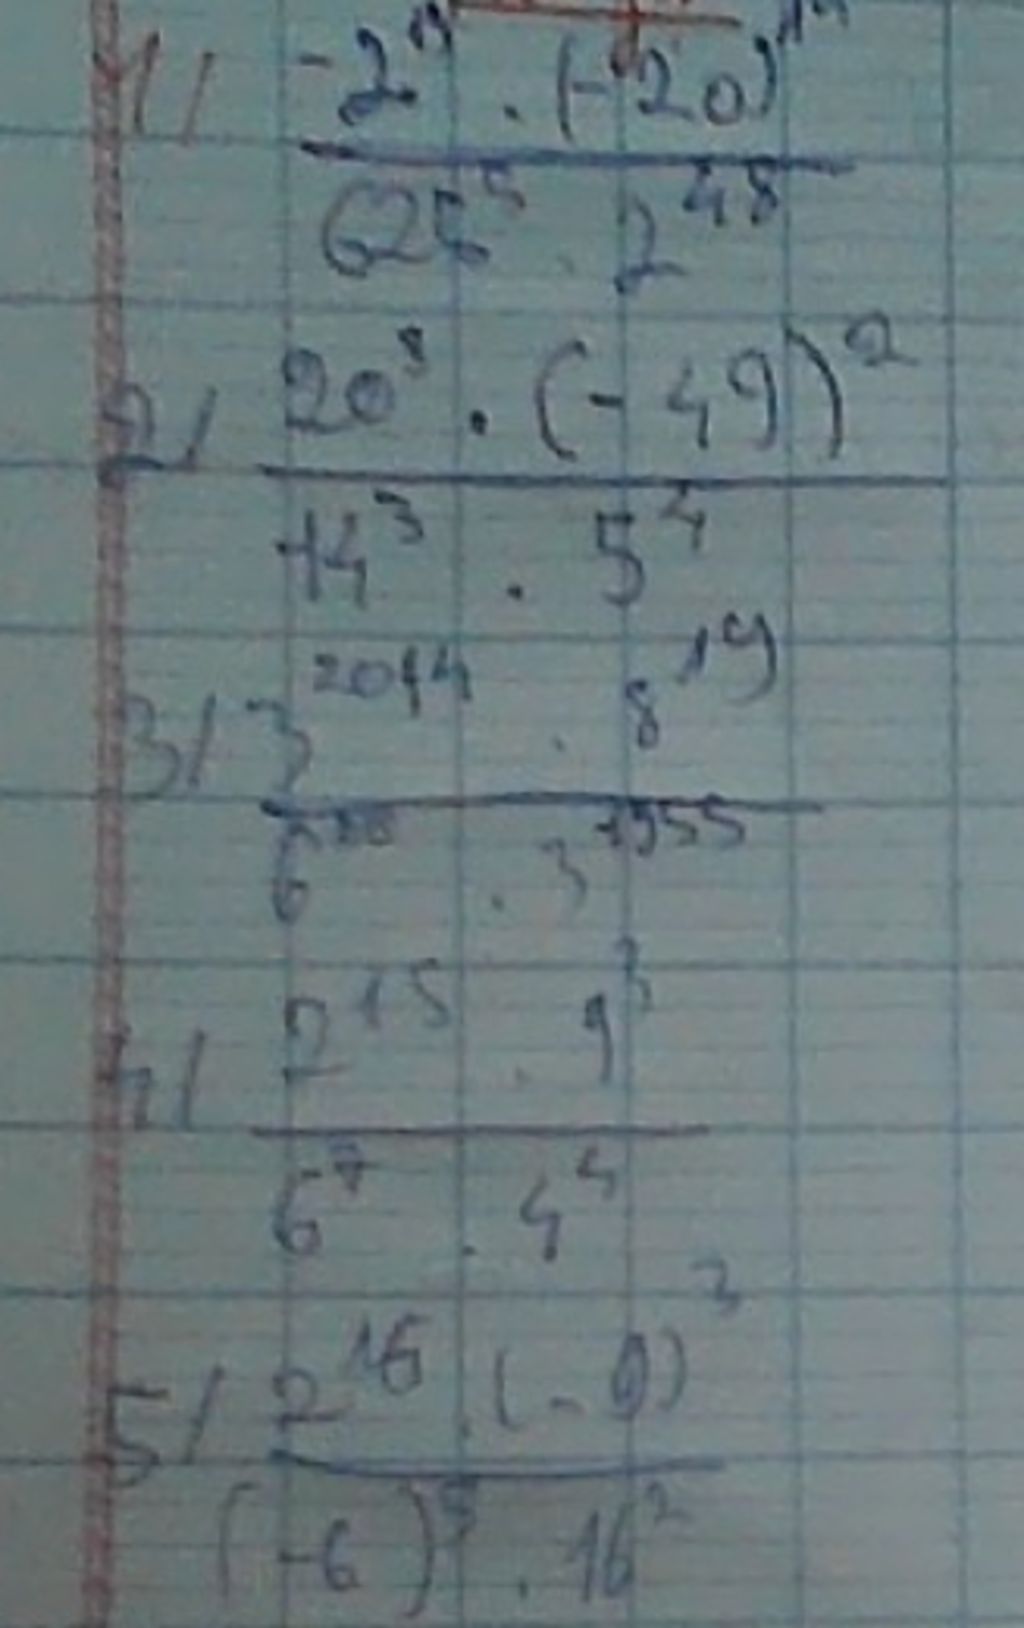 1/ -2 . (-20)
625⁵ . 2⁴⁸
2/ 20⁸ . (-49)²
14³ . 5⁴
3/ 3²⁰¹⁴ . 8¹⁹
6 . 3¹⁹⁵⁵
4/ 2¹⁵ . 9³
6⁷ . 4⁴
5/ 2¹⁶ . (-9)³
(-6) . 16²